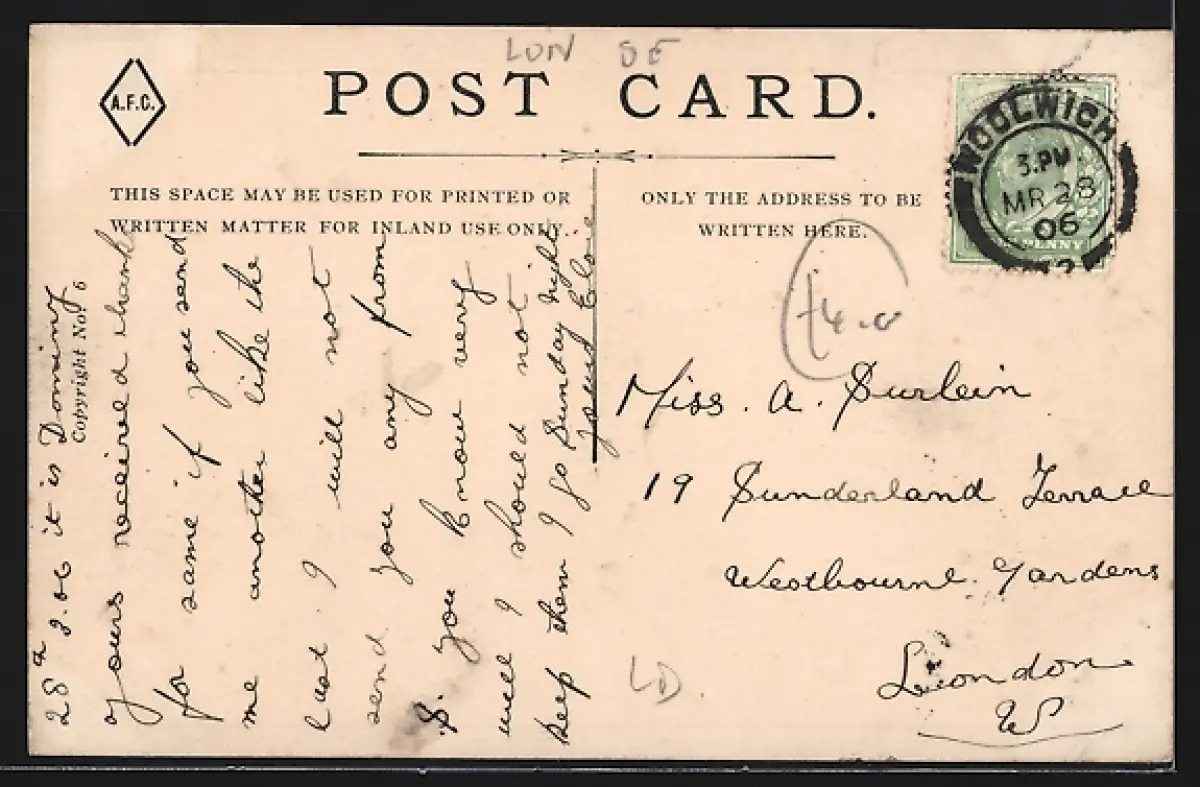 LON SE
A.F.C.
POST CARD.
THIS SPACE MAY BE USED FOR PRINTED OR
WRITTEN MATTER FOR INLAND USE ONLY.
ONLY THE ADDRESS TO BE
WRITTEN HERE.
WOOLWICH
3.PM
MR 28
06
PENNY
£4.0
Miss. A. Surlein
19 Sunderland Terrace
Westbourne. Gardens
London
W
LD.
Copyright No. 6
28 3.06 it is
yours received thanks
for same if you send
me another like the
last I will not
send you any from
S. you know very
well I should not
keep them I go Sunday night